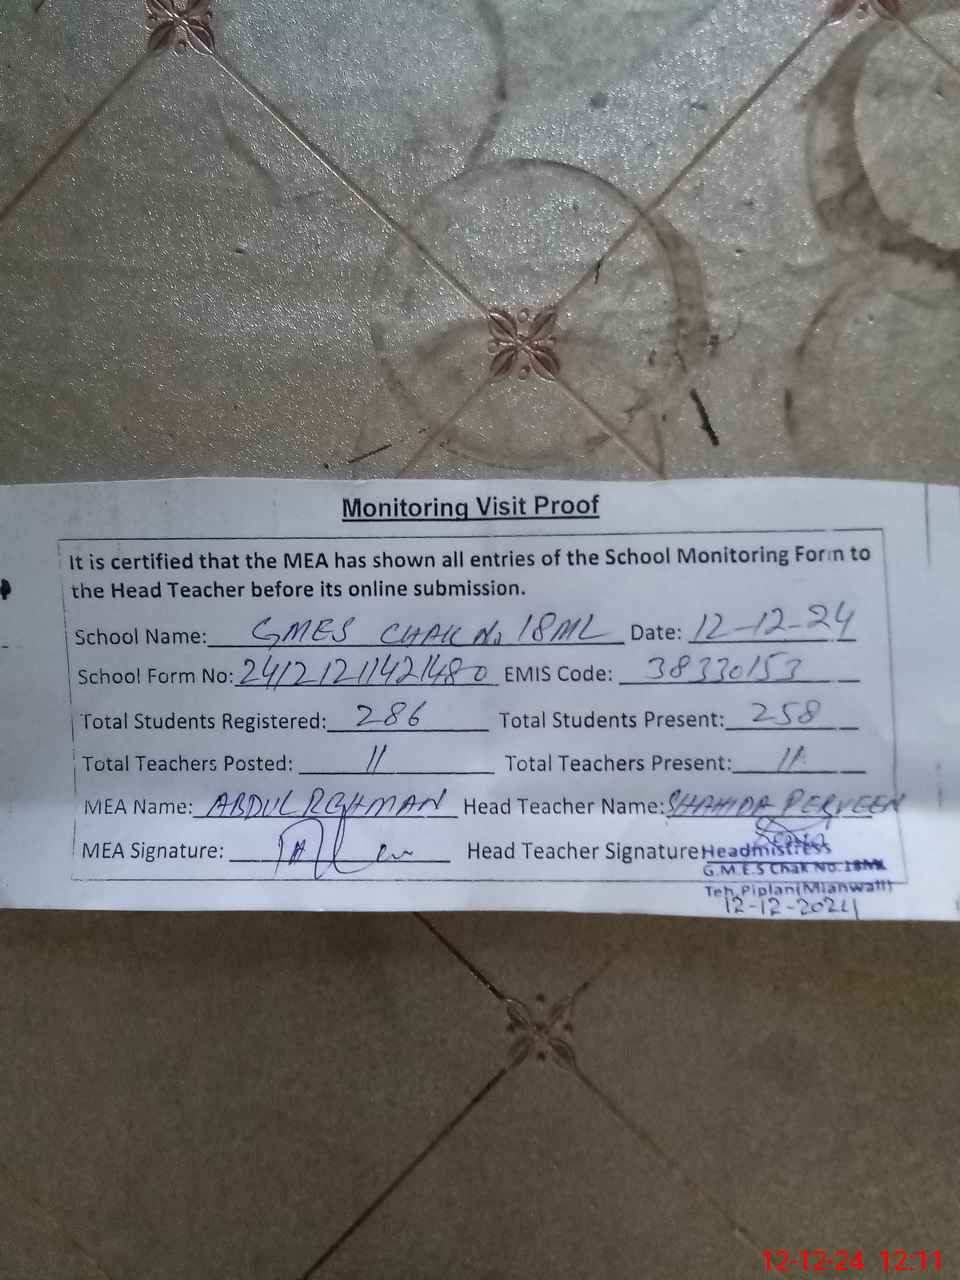 Monitoring Visit Proof
It is certified that the MEA has shown all entries of the School Monitoring Form to
the Head Teacher before its online submission.
School Name: GMES CHAK No 18ML Date: 12-12-24
School Form No: 24121211421480 EMIS Code: 38330153
Total Students Registered: 286 Total Students Present: 258
Total Teachers Posted: 11 Total Teachers Present: 11
MEA Name: ABDUL REHMAN Head Teacher Name: SHAHIDA PERVEEN
MEA Signature: Head Teacher Signature Headmistress
G.M.E.S Chak No. 18ML
Teh. Piplan (Mianwali)
12-12-2024
12-12-24 12:11